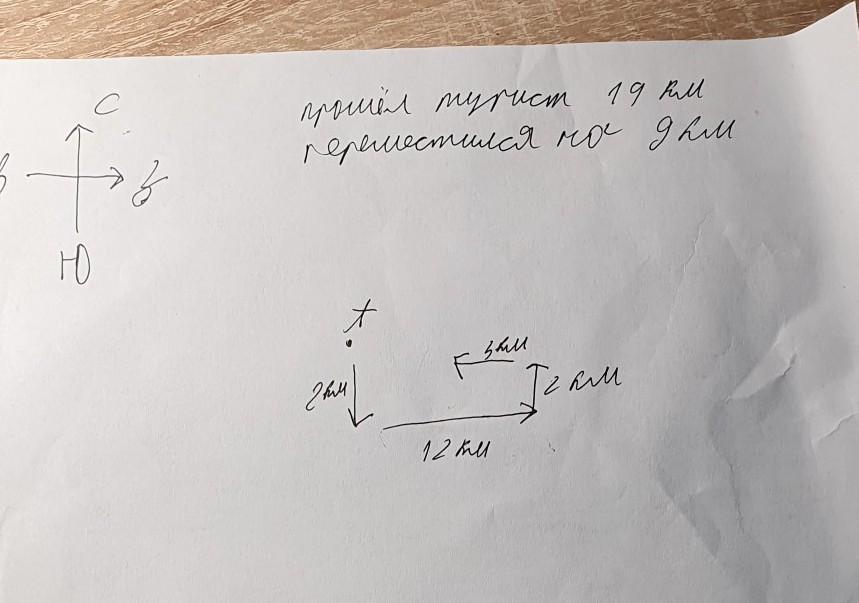 С
В
Ю
прошёл турист 19 км
переместился на 9 км
А
2км
12 км
2 км
3км